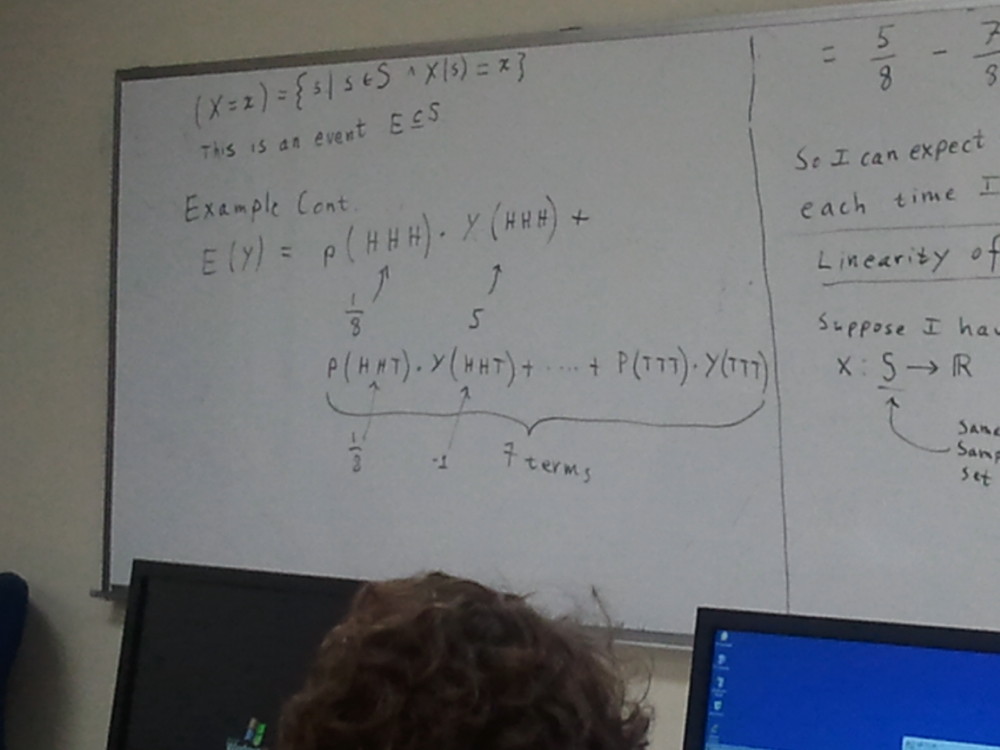 (X=x) = {s | s ∈ S ∧ X(s) = x}
This is an event E ⊆ S
Example Cont.
E(Y) = P(HHH) · Y(HHH) +
1/8 5
P(HHT) · Y(HHT) + ···· + P(TTT) · Y(TTT)
1/8 -1 7 terms
= 5/8 - 7/8
So I can expect
each time I
Linearity of
Suppose I hav
X : S → ℝ
Same
Samp
set